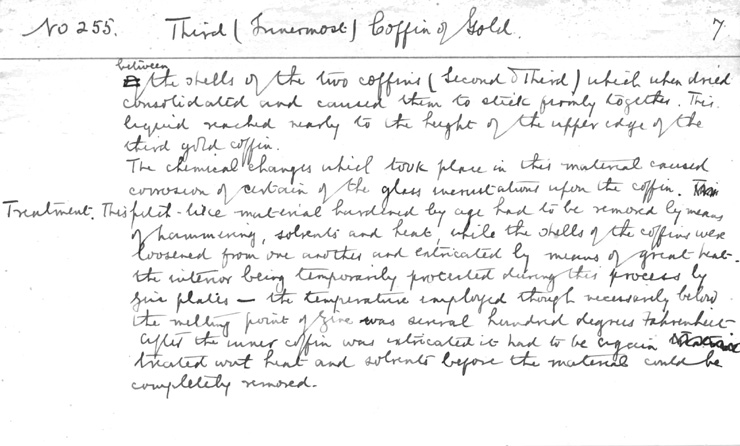 No 255. Third (Innermost) Coffin of Gold. 7
between
the shells of the two coffins (Second & Third) which when dried
consolidated and caused them to stick firmly together. This
liquid reached nearly to the height of the upper edge of the
third gold coffin.
The chemical changes which took place in this material caused
corrosion of certain of the glass incrustations upon the coffin.
Treatment. This pitch-like material hardened by age had to be removed by means
of hammering, solvents and heat, while the shells of the coffins were
loosened from one another and extricated by means of great heat.
the interior being temporarily protected during this process by
zinc plates – the temperature employed though necessarily below
the melting point of zinc was several hundred degrees Fahrenheit.
After the inner coffin was extricated it had to be again
treated with heat and solvents before the material could be
completely removed.